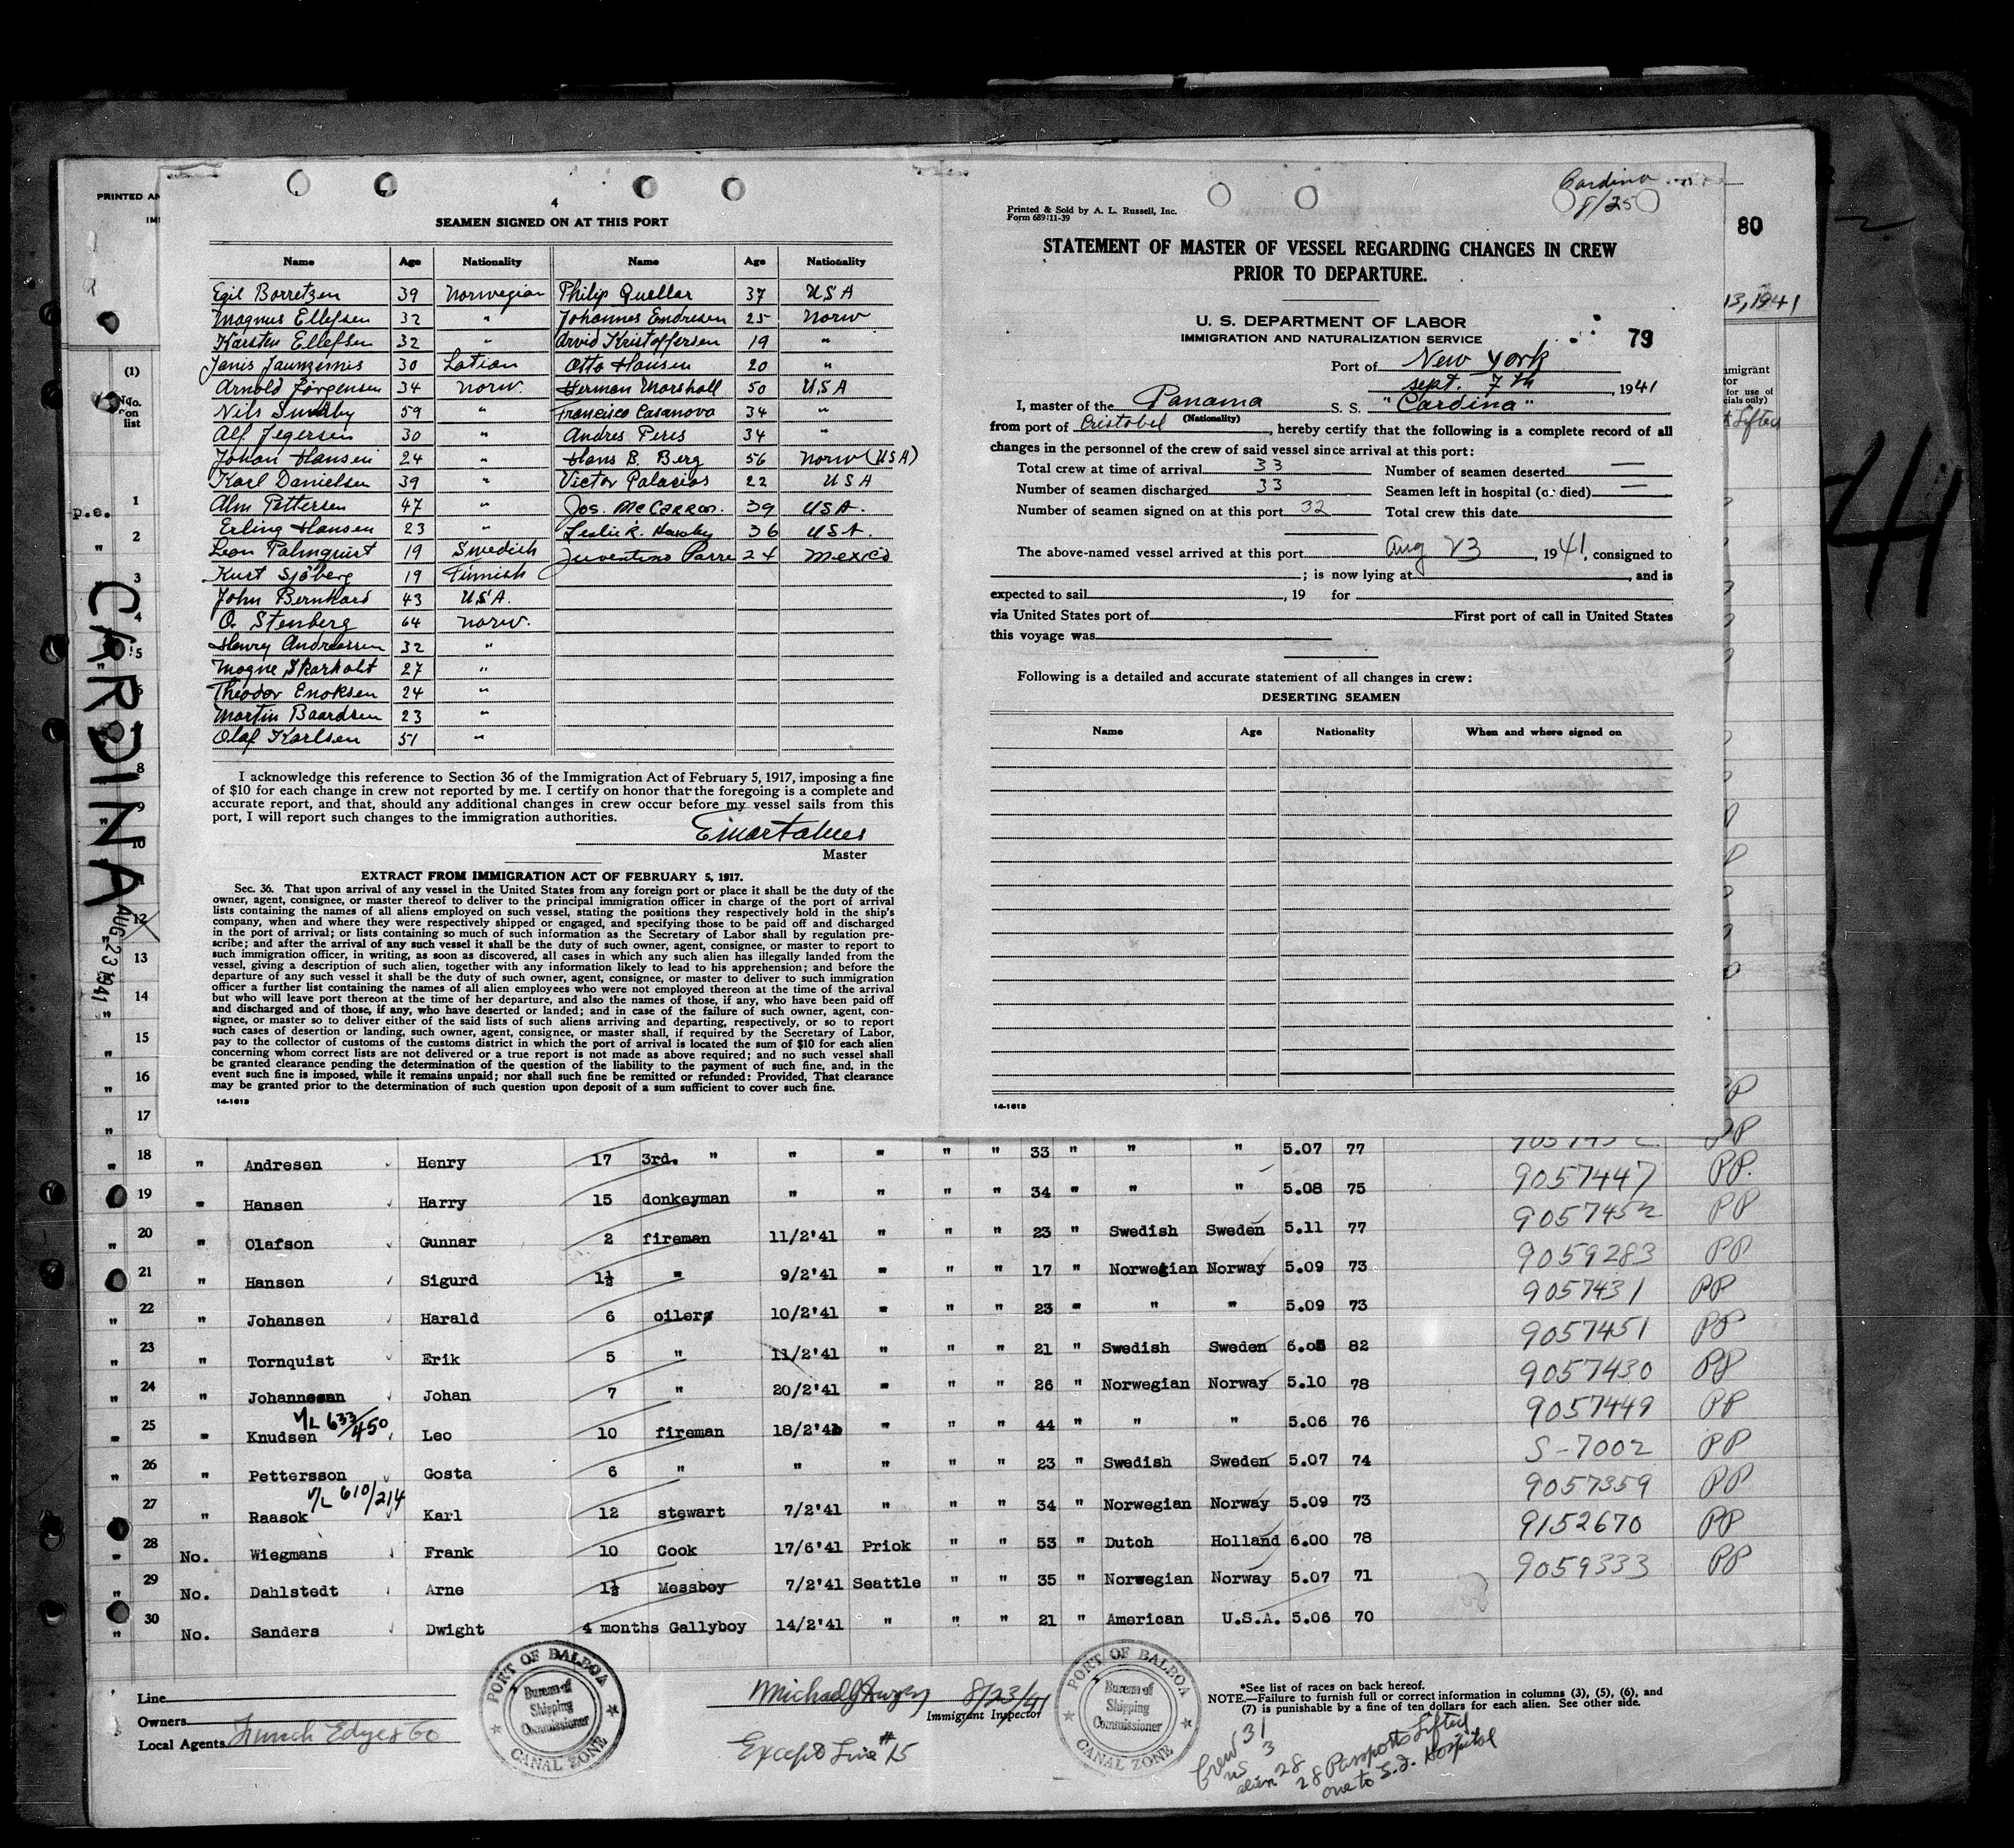 Cardina
8/25
PRINTED AN
IM
4
SEAMEN SIGNED ON AT THIS PORT
Name Age Nationality Name Age Nationality
Egil Borretzen 39 Norwegian Philip Quellar 37 USA
Magnus Ellefsen 32 " Johannes Endresen 25 Norw
Karsten Ellefsen 32 " Arvid Kristoffersen 19 "
Janis Jaunzemis 30 Latian Otto Hansen 20 "
Arnold Jørgensen 34 Norw. Herman Marshall 50 USA
Nils Sundby 59 " Francisco Casanova 34 "
Alf Jegersen 30 " Andres Peres 34 "
Johan Hansen 24 " Hans B. Berg 56 Norw (USA)
Karl Danielsen 39 " Victor Palacios 22 USA
Alm Pettersen 47 " Jos. McCarron. 39 USA.
Erling Hansen 23 " Leslie R. Hawley 36 USA.
Leon Palmquist 19 Swedish Juventino Parre 24 Mexico
Kurt Sjöberg 19 Finnish
John Bernhard 43 USA.
O. Stenberg 64 Norw.
Henry Andreassen 32 "
Mogne Skarholt 27 "
Theodor Enoksen 24 "
Martin Baardsen 23 "
Olaf Karlsen 51 "
I acknowledge this reference to Section 36 of the Immigration Act of February 5, 1917, imposing a fine
of $10 for each change in crew not reported by me. I certify on honor that the foregoing is a complete and
accurate report, and that, should any additional changes in crew occur before my vessel sails from this
port, I will report such changes to the immigration authorities.
Master
EXTRACT FROM IMMIGRATION ACT OF FEBRUARY 5, 1917.
Sec. 36. That upon arrival of any vessel in the United States from any foreign port or place it shall be the duty of the
owner, agent, consignee, or master thereof to deliver to the principal immigration officer in charge of the port of arrival
lists containing the names of all aliens employed on such vessel, stating the positions they respectively hold in the ship's
company, when and where they were respectively shipped or engaged, and specifying those to be paid off and discharged
in the port of arrival; or lists containing so much of such information as the Secretary of Labor shall by regulation pre-
scribe; and after the arrival of any such vessel it shall be the duty of such owner, agent, consignee, or master to report to
such immigration officer, in writing, as soon as discovered, all cases in which any such alien has illegally landed from the
vessel, giving a description of such alien, together with any information likely to lead to his apprehension; and before the
departure of any such vessel it shall be the duty of such owner, agent, consignee, or master to deliver to such immigration
officer a further list containing the names of all alien employees who were not employed thereon at the time of the arrival
but who will leave port thereon at the time of her departure, and also the names of those, if any, who have been paid off
and discharged and of those, if any, who have deserted or landed; and in case of the failure of such owner, agent, con-
signee, or master so to deliver either of the said lists of such aliens arriving and departing, respectively, or so to report
such cases of desertion or landing, such owner, agent, consignee, or master shall, if required by the Secretary of Labor,
pay to the collector of customs of the customs district in which the port of arrival is located the sum of $10 for each alien
concerning whom correct lists are not delivered or a true report is not made as above required; and no such vessel shall
be granted clearance pending the determination of the question of the liability to the payment of such fine, and, in the
event such fine is imposed, while it remains unpaid; nor shall such fine be remitted or refunded: Provided, That clearance
may be granted prior to the determination of such question upon deposit of a sum sufficient to cover such fine.
14-1613
Printed & Sold by A. L. Russell, Inc.
Form 689:11-39
STATEMENT OF MASTER OF VESSEL REGARDING CHANGES IN CREW
PRIOR TO DEPARTURE.
U. S. DEPARTMENT OF LABOR
IMMIGRATION AND NATURALIZATION SERVICE
79
Port of New York
Sept. 7th, 1941
I, master of the Panama S. S. "Cardina"
(Nationality)
from port of Cristobel, hereby certify that the following is a complete record of all
changes in the personnel of the crew of said vessel since arrival at this port:
Total crew at time of arrival 33 Number of seamen deserted —
Number of seamen discharged 33 Seamen left in hospital (or died) —
Number of seamen signed on at this port 32 Total crew this date
The above-named vessel arrived at this port Aug 23, 1941, consigned to
; is now lying at , and is
expected to sail , 19 for
via United States port of First port of call in United States
this voyage was
Following is a detailed and accurate statement of all changes in crew:
DESERTING SEAMEN
Name Age Nationality When and where signed on
14-1613
80
13, 1941
mmigrant
tor
for use of
cials only)
Lifted
41
(1)
No.
on
list
p.e. 1
" 2
3
4
5
6
7
8
9
10
12
13
14
15
16
17
CARDINA
AUG 23 1941
18 " Andresen Henry 17 3rd. " " " " " 33 " " " 5.07 77
19 " Hansen Harry 15 donkeyman " " " " 34 " " " 5.08 75 9057447 PP.
20 " Olafson Gunnar 2 fireman 11/2'41 " " " 23 " Swedish Sweden 5.11 77 9057452 PP
21 " Hansen Sigurd 1½ " 9/2'41 " " " 17 " Norwegian Norway 5.09 73 9059283 PP
22 " Johansen Harald 6 oiler 10/2'41 " " " 23 " " " 5.09 73 9057431 PP
23 " Tornquist Erik 5 " 11/2'41 " " " 21 " Swedish Sweden 6.05 82 9057451 PP
24 " Johannesen Johan 7 " 20/2'41 " " " 26 " Norwegian Norway 5.10 78 9057430 PP
V/L 633/450
25 " Knudsen Leo 10 fireman 18/2'41 " " " 44 " " " 5.06 76 9057449 PP
26 " Pettersson Gosta 6 " " " " " 23 " Swedish Sweden 5.07 74 S-7002 PP
V/L 610/214
27 " Raasok Karl 12 stewart 7/2'41 " " " 34 " Norwegian Norway 5.09 73 9057359 PP
28 No. Wiegmans Frank 10 Cook 17/6'41 Priok " " 53 " Dutch Holland 6.00 78 9152670 PP
29 No. Dahlstedt Arne 1½ Messboy 7/2'41 Seattle " " 35 " Norwegian Norway 5.07 71 9059333 PP
30 No. Sanders Dwight 4 months Gallyboy 14/2'41 " " " 21 " American U.S.A. 5.06 70
Line
Owners
Local Agents Funch Edye & Co
PORT OF BALBOA
Bureau of
Shipping
Commissioner
CANAL ZONE
8/23/41
Immigrant Inspector
Except Line #15
PORT OF BALBOA
Bureau of
Shipping
Commissioner
CANAL ZONE
*See list of races on back hereof.
NOTE.—Failure to furnish full or correct information in columns (3), (5), (6), and
(7) is punishable by a fine of ten dollars for each alien. See other side.
Crew 31
US 3
alien 28
28 Passports Lifted
one to S.I. Hospital